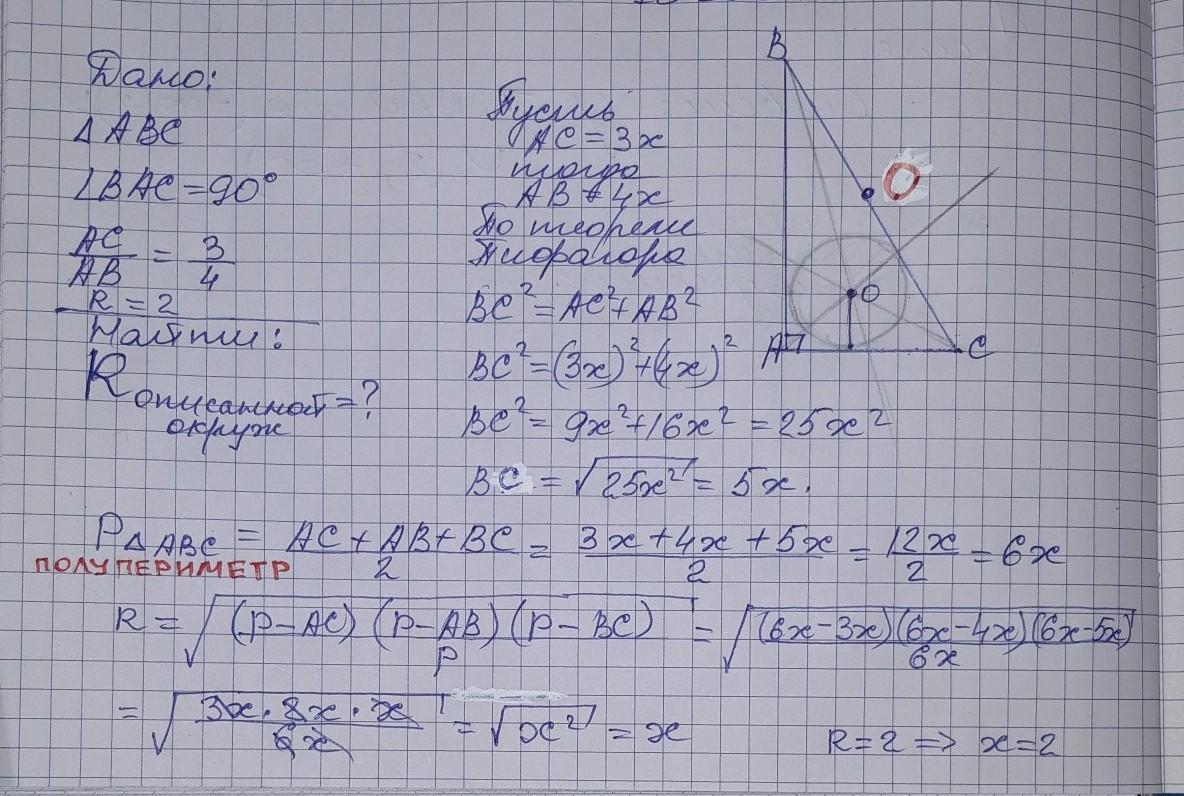 Дано:
△ABC
∠BAC=90°
AC/AB = 3/4
R = 2
Найти:
R описанной = ?
окруж
Пусть
AC = 3x
тогда
AB = 4x
По теореме
Пифагора
BC² = AC² + AB²
BC² = (3x)² + (4x)²
BC² = 9x² + 16x² = 25x²
BC = √25x² = 5x.
B
O
O
A
C
P△ABC = (AC + AB + BC)/2 = (3x + 4x + 5x)/2 = 12x/2 = 6x
ПОЛУПЕРИМЕТР
R = √((p-AC)(p-AB)(p-BC)/p) = √((6x-3x)(6x-4x)(6x-5x)/6x)
= √(3x·2x·x/6x) = √x² = x
R=2 => x=2